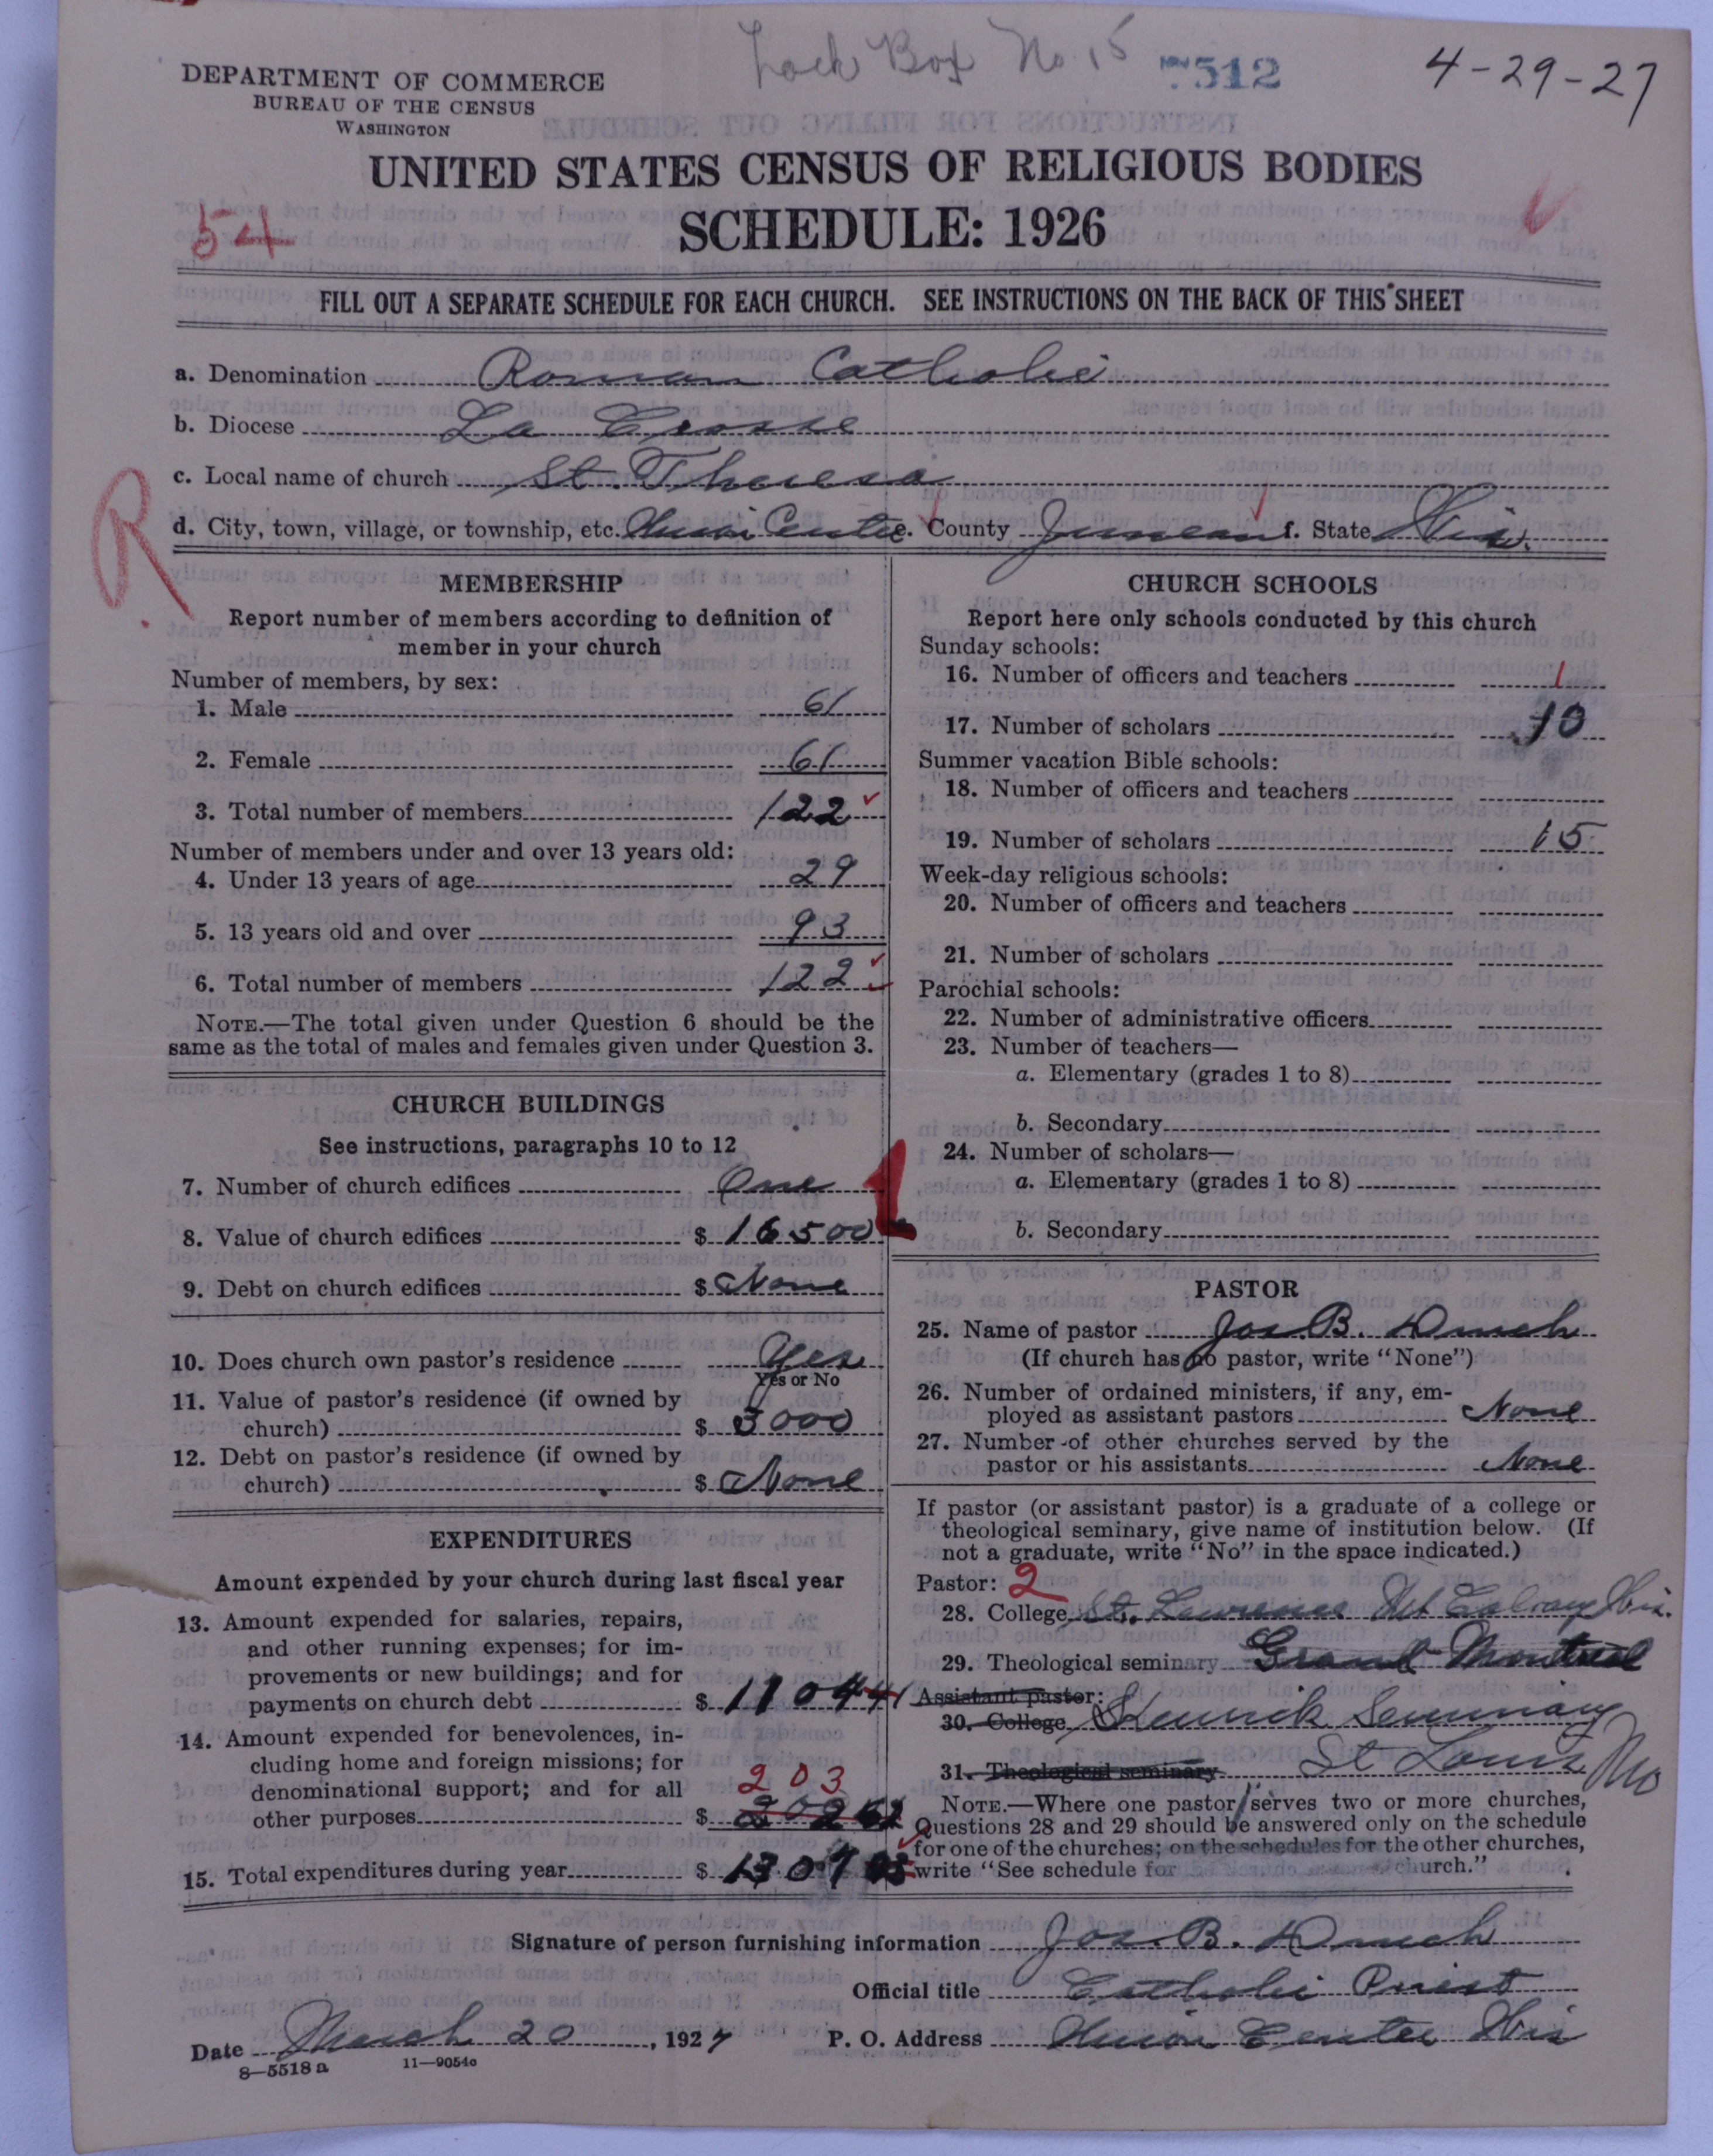 Lock Box No 15
7512
4-29-27
DEPARTMENT OF COMMERCE
BUREAU OF THE CENSUS
WASHINGTON
UNITED STATES CENSUS OF RELIGIOUS BODIES
54
SCHEDULE: 1926
FILL OUT A SEPARATE SCHEDULE FOR EACH CHURCH. SEE INSTRUCTIONS ON THE BACK OF THIS SHEET
a. Denomination Roman Catholic
b. Diocese La Crosse
c. Local name of church St. Theresa
R
d. City, town, village, or township, etc. Union Center e. County Juneau f. State Wis.
MEMBERSHIP
Report number of members according to definition of
member in your church
Number of members, by sex:
1. Male 61
2. Female 61
3. Total number of members 122
Number of members under and over 13 years old:
4. Under 13 years of age 29
5. 13 years old and over 93
6. Total number of members 122
NOTE.—The total given under Question 6 should be the
same as the total of males and females given under Question 3.
CHURCH BUILDINGS
See instructions, paragraphs 10 to 12
7. Number of church edifices One 1
8. Value of church edifices $ 16500
9. Debt on church edifices $ None
10. Does church own pastor's residence Yes
Yes or No
11. Value of pastor's residence (if owned by
church) $ 3000
12. Debt on pastor's residence (if owned by
church) $ None
EXPENDITURES
Amount expended by your church during last fiscal year
13. Amount expended for salaries, repairs,
and other running expenses; for im-
provements or new buildings; and for
payments on church debt $ 1104 41
14. Amount expended for benevolences, in-
cluding home and foreign missions; for
denominational support; and for all
203
other purposes $
15. Total expenditures during year $ 1307
CHURCH SCHOOLS
Report here only schools conducted by this church
Sunday schools:
16. Number of officers and teachers 1
17. Number of scholars 10
Summer vacation Bible schools:
18. Number of officers and teachers
19. Number of scholars 15
Week-day religious schools:
20. Number of officers and teachers
21. Number of scholars
Parochial schools:
22. Number of administrative officers
23. Number of teachers—
a. Elementary (grades 1 to 8)
b. Secondary
24. Number of scholars—
a. Elementary (grades 1 to 8)
b. Secondary
PASTOR
25. Name of pastor Jos. B.
(If church has no pastor, write "None")
26. Number of ordained ministers, if any, em-
ployed as assistant pastors None
27. Number of other churches served by the
pastor or his assistants None
If pastor (or assistant pastor) is a graduate of a college or
theological seminary, give name of institution below. (If
not a graduate, write "No" in the space indicated.)
Pastor: 2
28. College St. Lawrence Mt Calvary Wis.
29. Theological seminary Grand Montreal
Assistant pastor:
30. College Kenrik Seminary
31. Theological seminary St Louis Mo
NOTE.—Where one pastor serves two or more churches,
Questions 28 and 29 should be answered only on the schedule
for one of the churches; on the schedules for the other churches,
write "See schedule for church."
Signature of person furnishing information Jos. B.
Official title Catholic Priest
Date March 20, 1927 P. O. Address Union Center Wis
8—5518 a 11—9054c